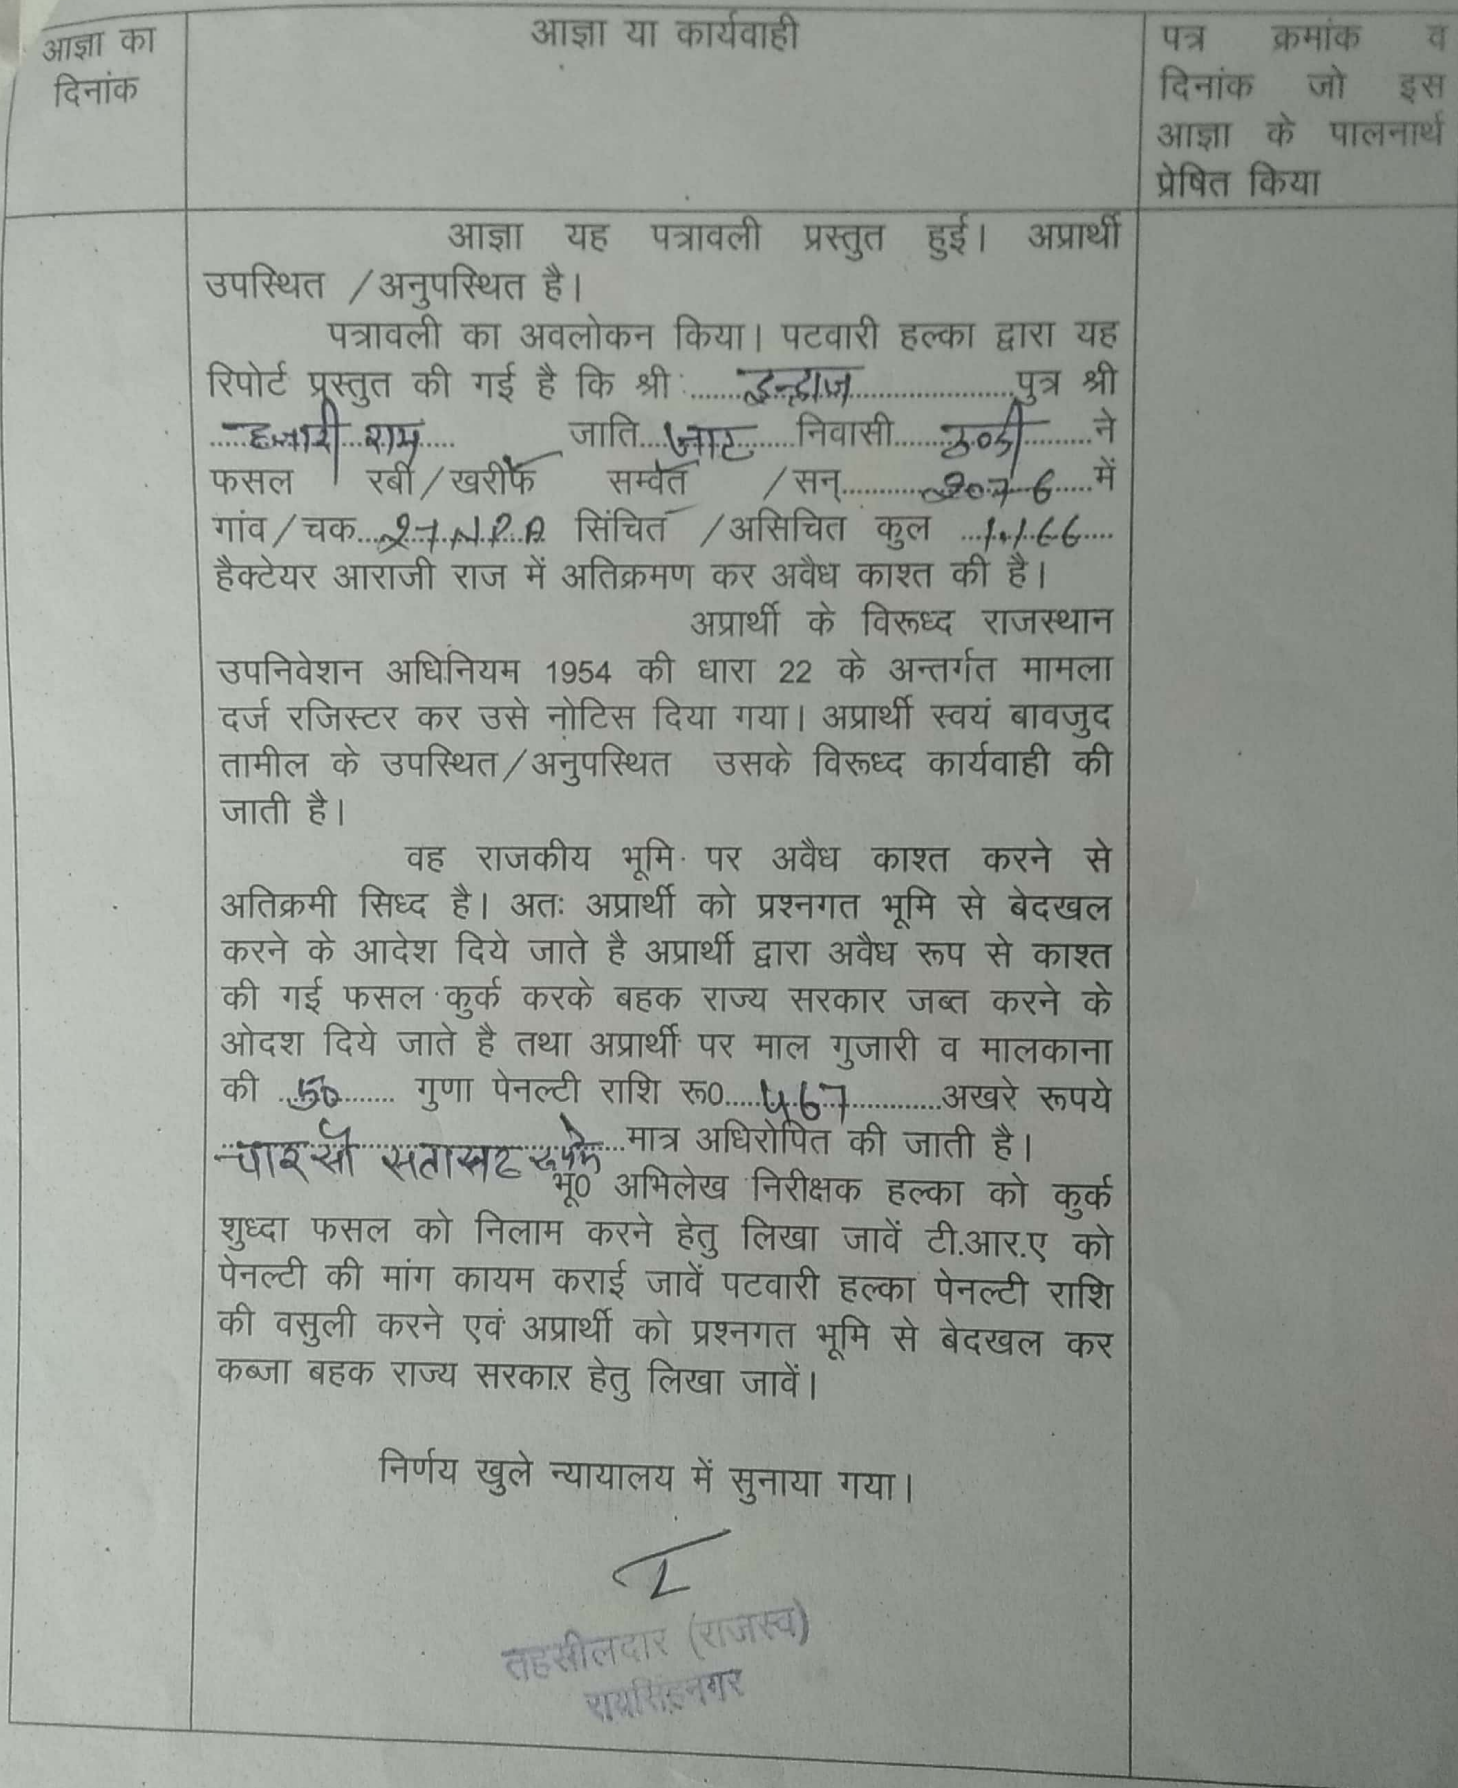 आज्ञा का
दिनांक
आज्ञा या कार्यवाही
पत्र क्रमांक व
दिनांक जो इस
आज्ञा के पालनार्थ
प्रेषित किया
आज्ञा यह पत्रावली प्रस्तुत हुई। अप्रार्थी
उपस्थित /अनुपस्थित है।
पत्रावली का अवलोकन किया। पटवारी हल्का द्वारा यह
रिपोर्ट प्रस्तुत की गई है कि श्री ......इन्द्राज..................पुत्र श्री
.....हजारी राम..... जाति....जाट......निवासी...................ने
फसल रबी/खरीफ सम्वत /सन्..........2076.....में
गांव/चक..27 NP A सिंचित /असिचित कुल ...1.166....
हैक्टेयर आराजी राज में अतिक्रमण कर अवैध काश्त की है।
अप्रार्थी के विरूध्द राजस्थान
उपनिवेशन अधिनियम 1954 की धारा 22 के अन्तर्गत मामला
दर्ज रजिस्टर कर उसे नोटिस दिया गया। अप्रार्थी स्वयं बावजुद
तामील के उपस्थित/अनुपस्थित उसके विरूध्द कार्यवाही की
जाती है।
वह राजकीय भूमि पर अवैध काश्त करने से
अतिक्रमी सिध्द है। अतः अप्रार्थी को प्रश्नगत भूमि से बेदखल
करने के आदेश दिये जाते है अप्रार्थी द्वारा अवैध रूप से काश्त
की गई फसल कुर्क करके बहक राज्य सरकार जब्त करने के
ओदश दिये जाते है तथा अप्रार्थी पर माल गुजारी व मालकाना
की ..50..... गुणा पेनल्टी राशि रू0....467..........अखरे रूपये
चारसौ सतासठ रूपये...मात्र अधिरोपित की जाती है।
भू0 अभिलेख निरीक्षक हल्का को कुर्क
शुध्दा फसल को निलाम करने हेतु लिखा जावें टी.आर.ए को
पेनल्टी की मांग कायम कराई जावें पटवारी हल्का पेनल्टी राशि
की वसुली करने एवं अप्रार्थी को प्रश्नगत भूमि से बेदखल कर
कब्जा बहक राज्य सरकार हेतु लिखा जावें।
निर्णय खुले न्यायालय में सुनाया गया।
तहसीलदार (राजस्व)
रायसिंहनगर